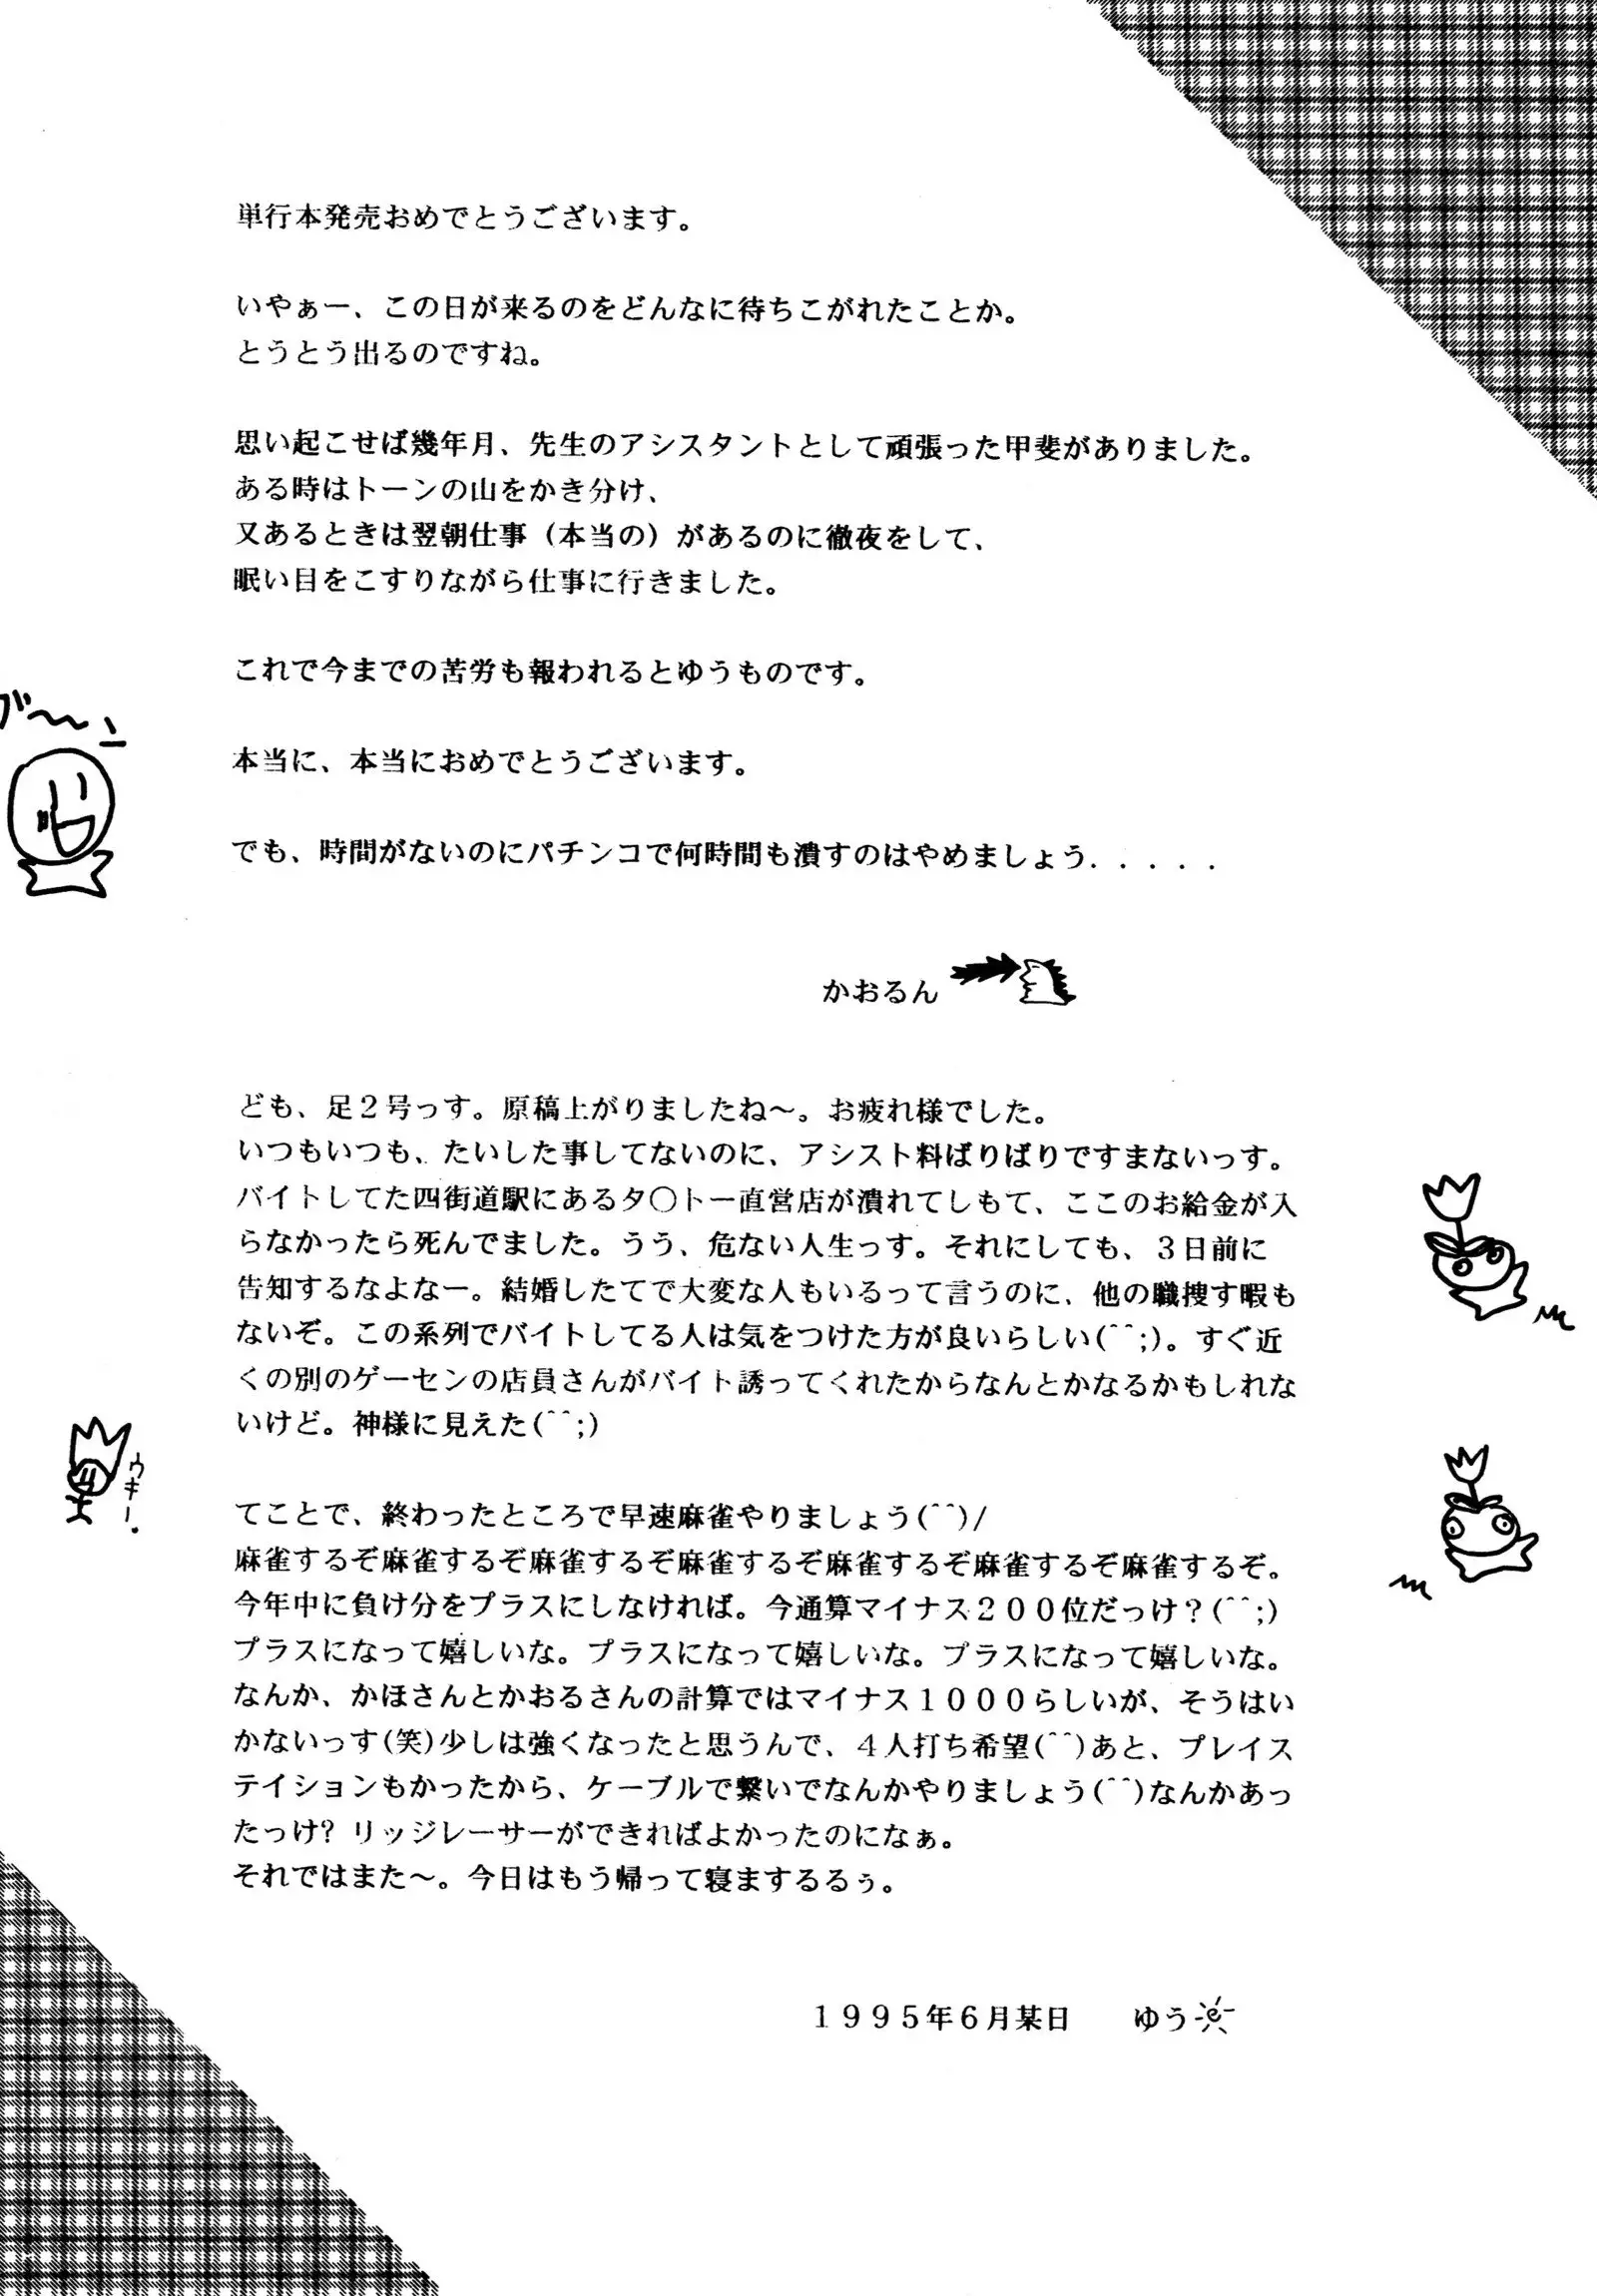 単行本発売おめでとうございます。
いやぁー、この日が来るのをどんなに待ちこがれたことか。
とうとう出るのですね。
思い起こせば幾年月、先生のアシスタントとして頑張った甲斐がありました。
ある時はトーンの山をかき分け、
又あるときは翌朝仕事（本当の）があるのに徹夜をして、
眠い目をこすりながら仕事に行きました。
これで今までの苦労も報われるとゆうものです。
ブ〜ン
本当に、本当におめでとうございます。
でも、時間がないのにパチンコで何時間も潰すのはやめましょう．．．．．
かおるん
ども、足２号っす。原稿上がりましたね〜。お疲れ様でした。
いつもいつも、たいした事してないのに、アシスト料ばりばりですまないっす。
バイトしてた四街道駅にあるタ○トー直営店が潰れてしもて、ここのお給金が入
らなかったら死んでました。うう、危ない人生っす。それにしても、３日前に
告知するなよなー。結婚したてで大変な人もいるって言うのに、他の職捜す暇も
ないぞ。この系列でバイトしてる人は気をつけた方が良いらしい(^^;)。すぐ近
くの別のゲーセンの店員さんがバイト誘ってくれたからなんとかなるかもしれな
いけど。神様に見えた(^^;)
ウキー.
てことで、終わったところで早速麻雀やりましょう(^^)/
麻雀するぞ麻雀するぞ麻雀するぞ麻雀するぞ麻雀するぞ麻雀するぞ麻雀するぞ。
今年中に負け分をプラスにしなければ。今通算マイナス２００位だっけ？(^^;)
プラスになって嬉しいな。プラスになって嬉しいな。プラスになって嬉しいな。
なんか、かほさんとかおるさんの計算ではマイナス１０００らしいが、そうはい
かないっす(笑)少しは強くなったと思うんで、４人打ち希望(^^)あと、プレイス
テイションもかったから、ケーブルで繋いでなんかやりましょう(^^)なんかあっ
たっけ? リッジレーサーができればよかったのになぁ。
それではまた〜。今日はもう帰って寝まするるぅ。
１９９５年６月某日　ゆう